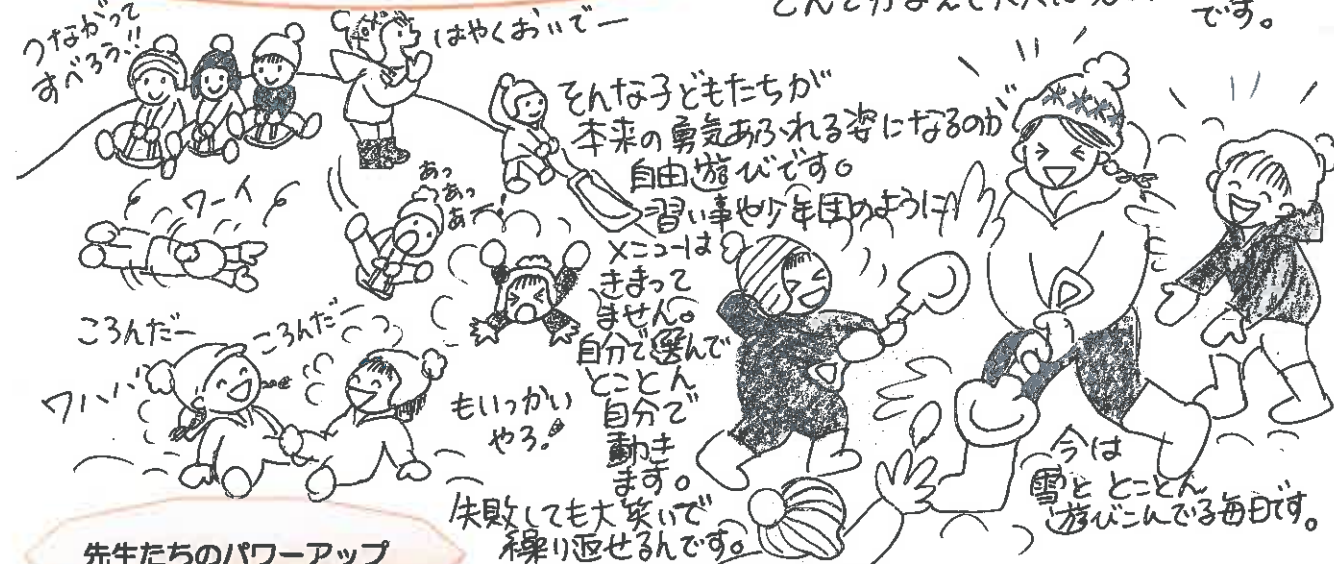 です。
つながって
すべろう!!
はやくおいでー
そんな子どもたちが
本来の勇気あふれる姿になるのが
自由遊びです。
習い事や少年団のように
メニューは
きまって
ません。
自分で選んで
とことん
自分で
動き
ます。
失敗しても大笑いで
繰り返せるんです。
ワーイ
あっ
あっ
あー!
ころんだー
ころんだー
ワハハ
もいっかい
やろ。
今は
雪と とことん
遊びこんでる毎日です。
先生たちのパワーアップ